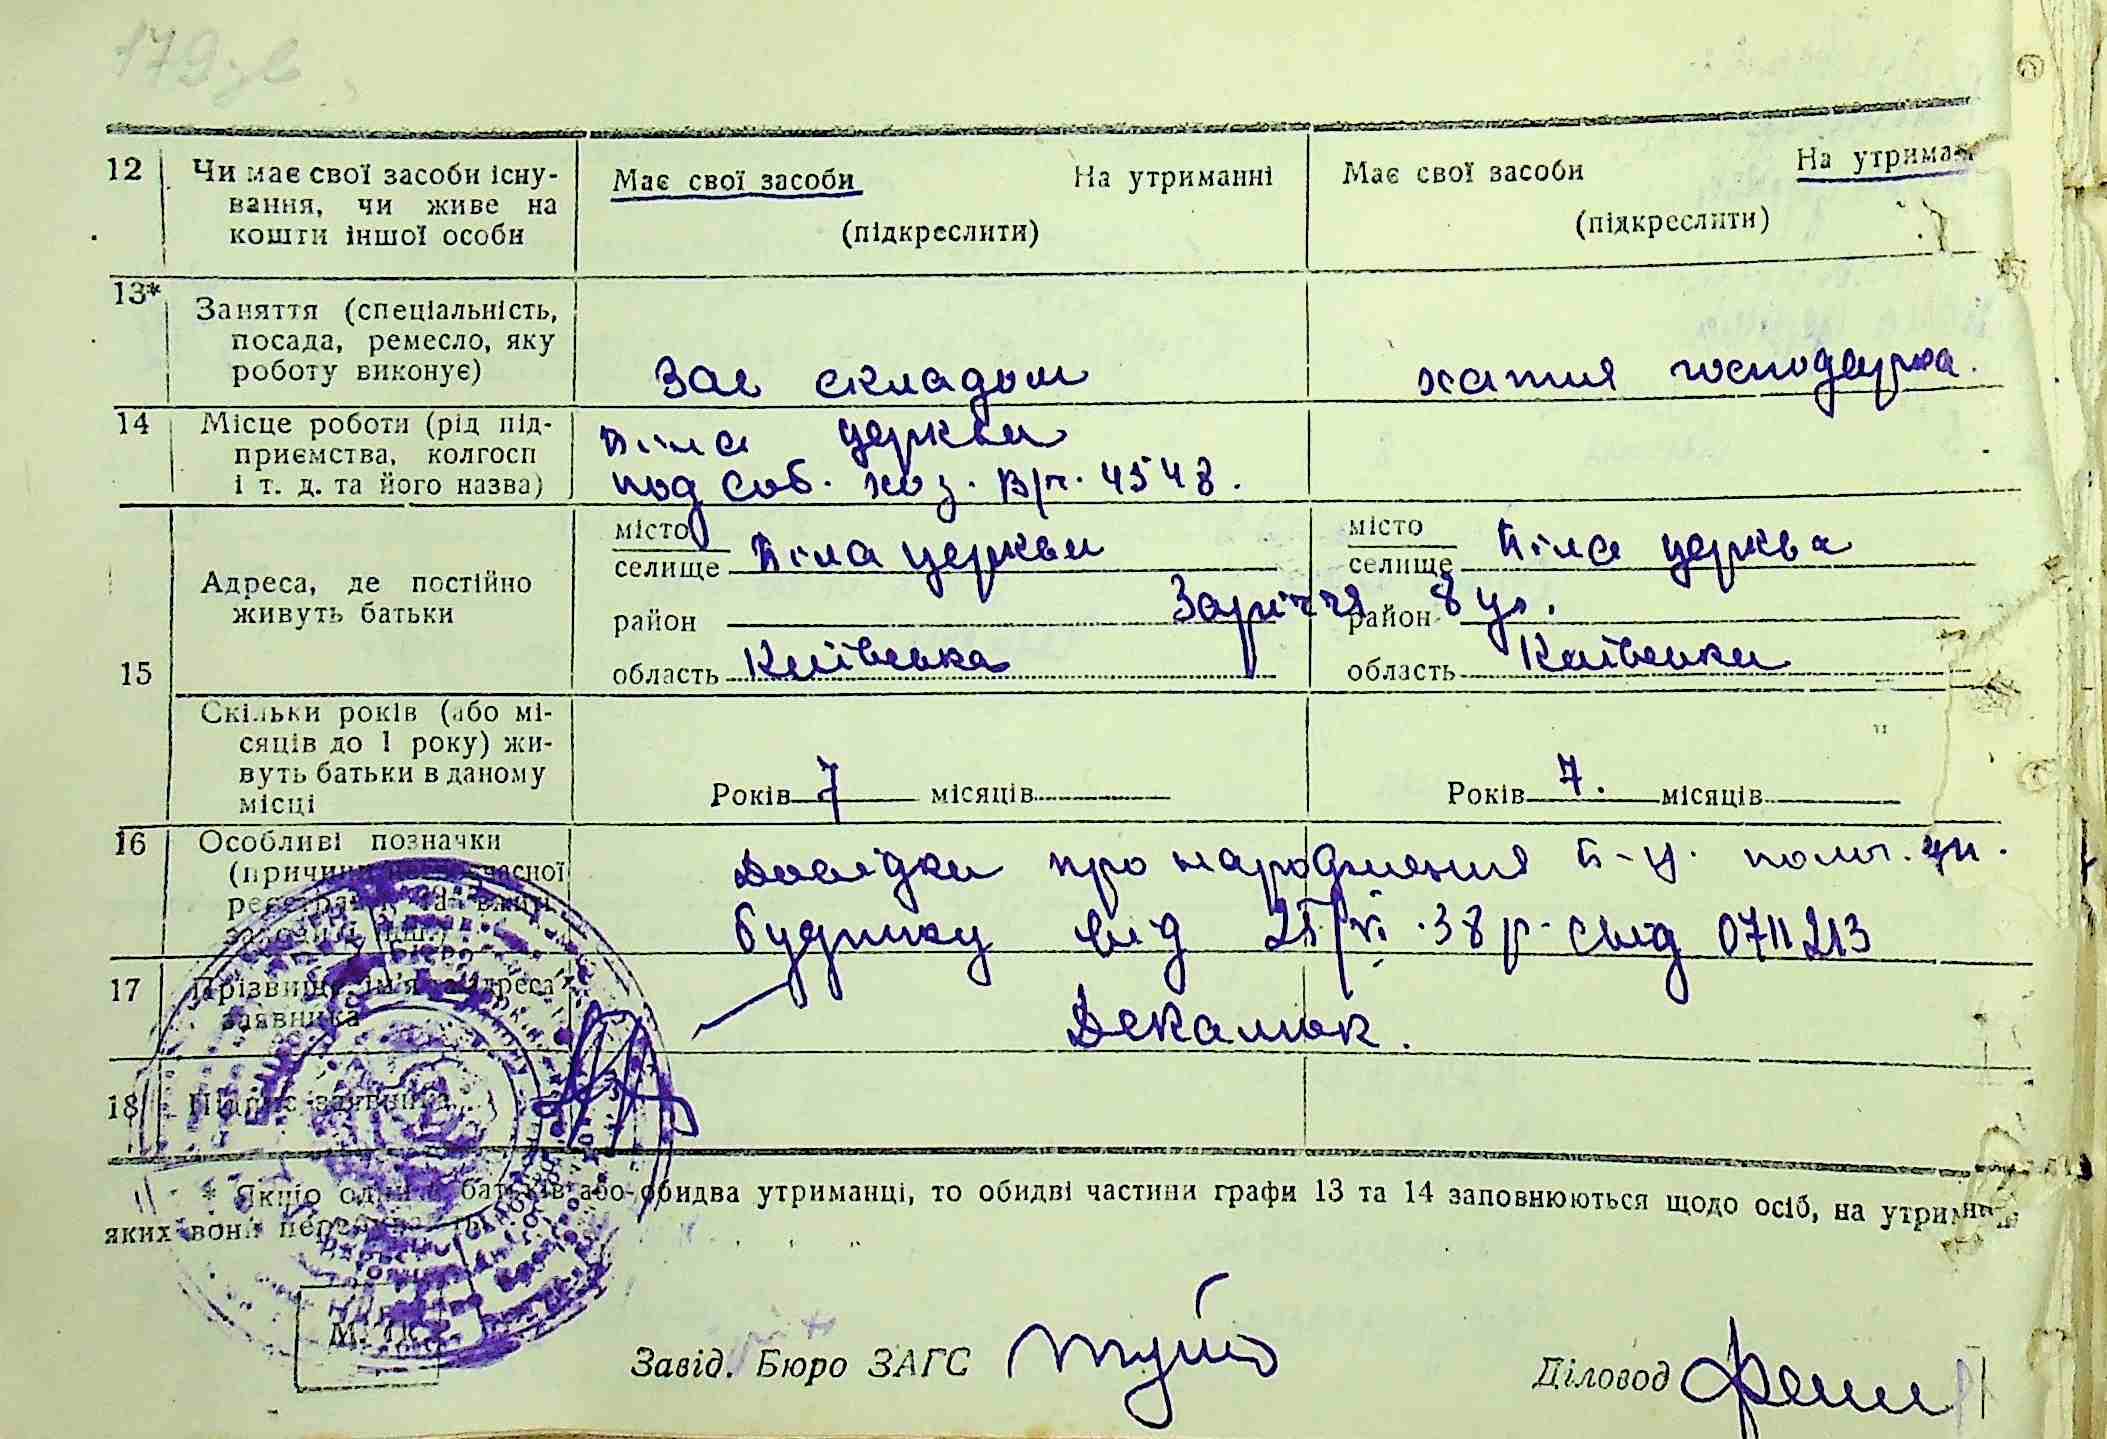 179зв
12 Чи має свої засоби існу-
вання, чи живе на
кошти іншої особи
Має свої засоби На утриманні
(підкреслити)
Має свої засоби На утриман
(підкреслити)
13* Заняття (спеціальність,
посада, ремесло, яку
роботу виконує)
Зав складом
хатня господарка.
14 Місце роботи (рід під-
приємства, колгосп
і т. д. та його назва)
Біла церква
под соб. хоз. В/ч. 4548.
15 Адреса, де постійно
живуть батьки
місто
селище Біла церква
район Заріччя 8 ул.
область Київська
місто
селище Біла церква
район
область Київська
15 Скільки років (або мі-
сяців до 1 року) жи-
вуть батьки в даному
місці
Років 7 місяців
Років 7. місяців
16 Особливі позначки
(причини несвоєчасної
реєстрації та
Довідка про народження Б-Ц. полог.
будинку від 25/VI.38р. свід 0711213
17 Прізвище, ім'я, адреса
заявника
Декалюк.
18 Підпис заявника
* Якщо один з батьків або обидва утриманці, то обидві частини графи 13 та 14 заповнюються щодо осіб, на утриманні
яких вони перебувають
М. П.
Завід. Бюро ЗАГС
Діловод